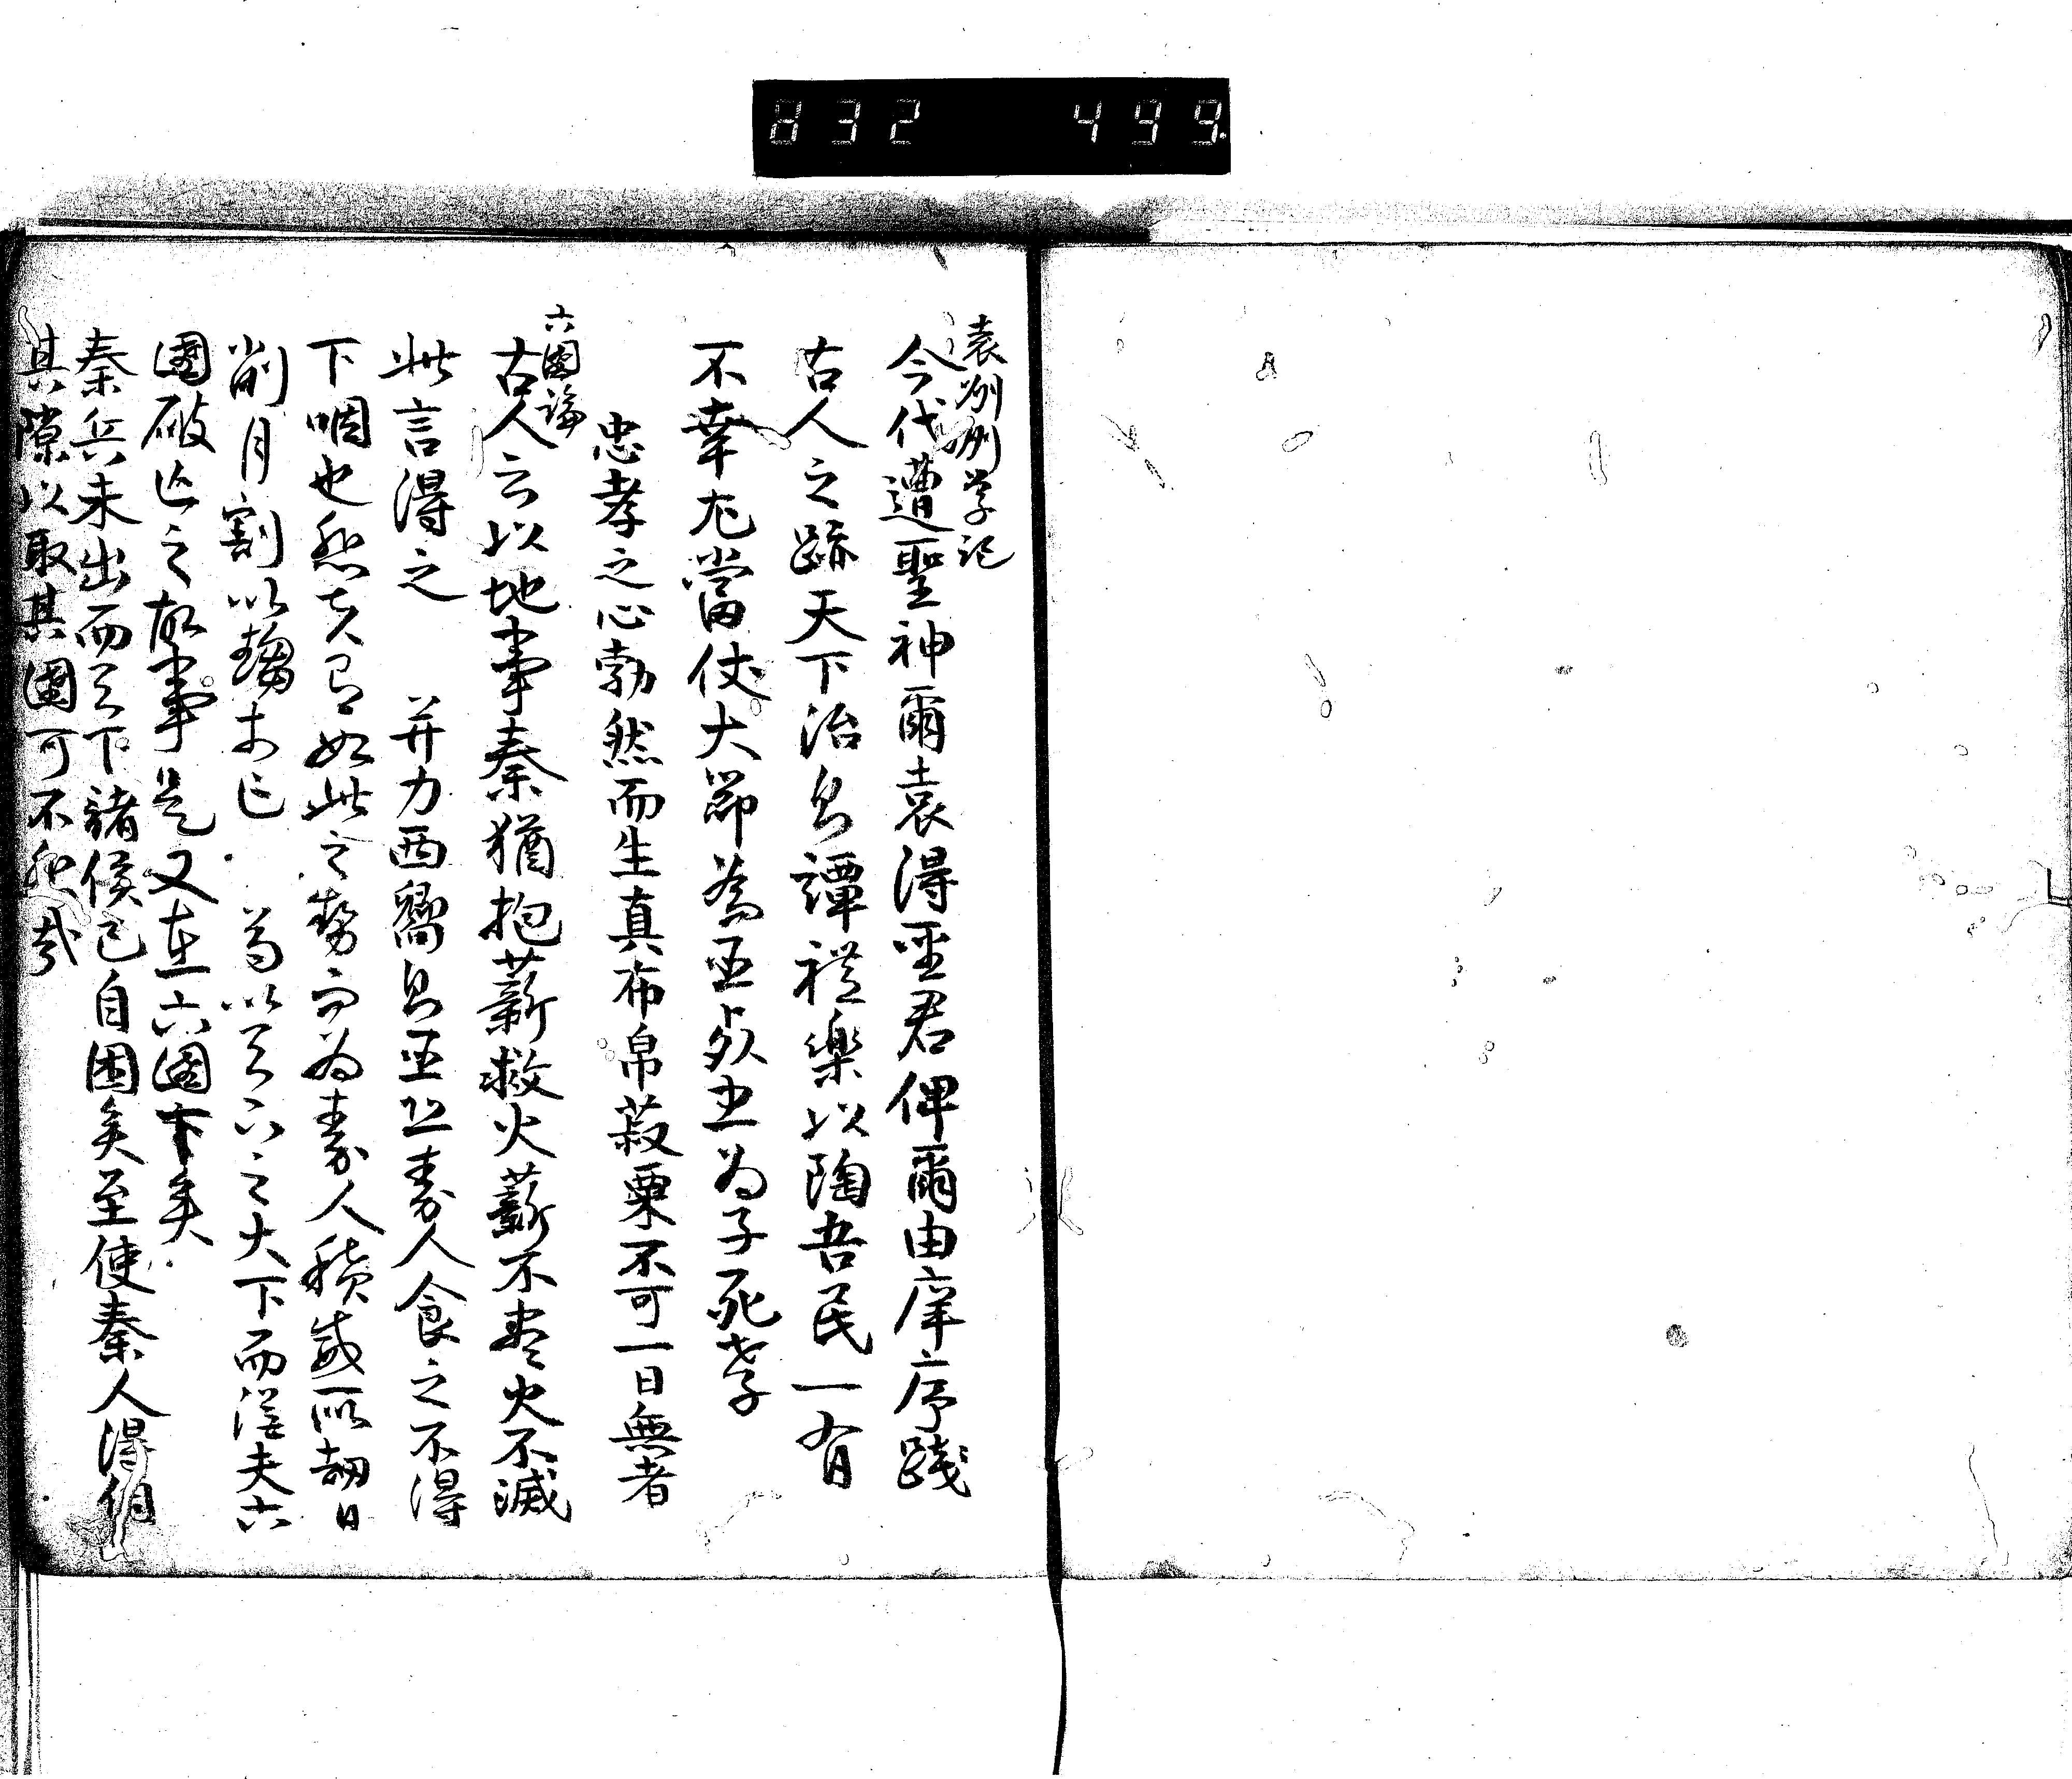 832 499.
袁州州学記
今代遭聖神爾袁得聖君俾爾由庠序踐
古人之跡天下治則譚礼樂以陶吾民一有
不幸尤當仗大節為臣死忠為子死孝
忠孝之心勃然而生真布帛菽粟不可一日無者
六國論
古人云以地事秦猶抱薪救火薪不尽火不滅
此言得之 并力西嚮則吾恐秦人食之不得
下咽也悲夫有如此之勢而為秦人積威所劫日
削月割以趨於亡 苟以天下之大下而從夫六
國破亡之故事是又在六國下矣
秦兵未出而天下諸侯已自困矣至使秦人得伺
其隙以取其國可不悲哉